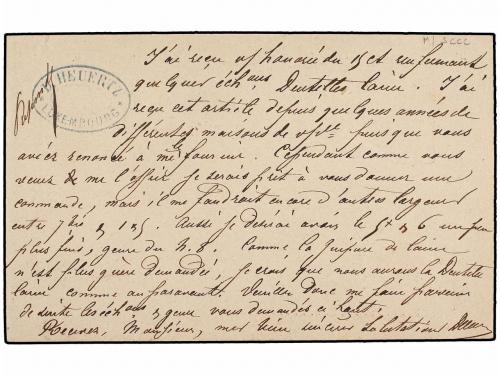 J'ai reçu v/ honorée du 15 ct renfermant
HEUERTZ
LUXEMBOURG
quelques échons Dentelles laine. J'ai
reçu cet article depuis quelques années de
différentes maisons de v/ puis que vous
aviez renoncé à me le fournir. Cependant comme vous
venez de me l'offrir je serais prêt à vous donner une
commande, mais il me faudrait encore d'autres largeur
entre Aussi je désirai avoir le 5 6 un peu
plus fins, genre du Comme la Guipure de laine
n'est plus guère demandée, je crois que nous aurons la Dentelle
laine comme auparavant. Veuillez donc me faire parvenir
de suite les échons & genre vous demandés ci haut.
Recevez, Monsieur, mes bien sincères Salutations